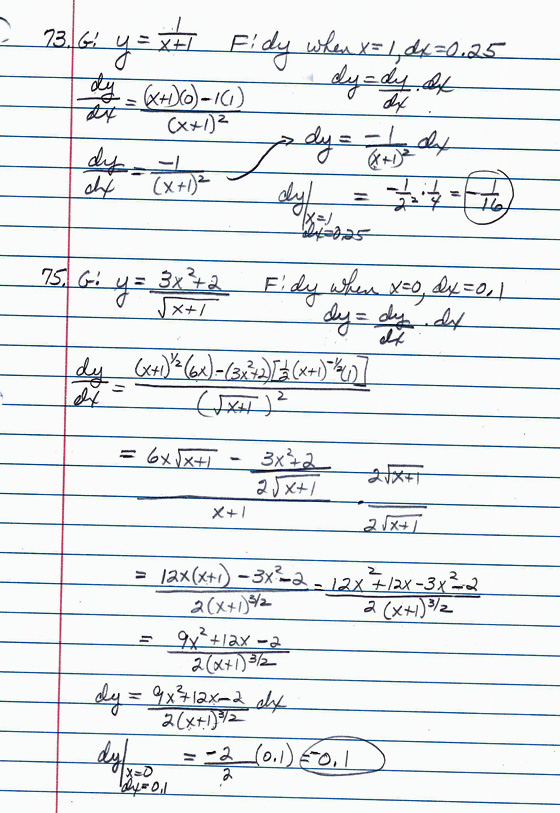 73. G: y = 1/(x+1) F: dy when x=1, dx=0.25
dy = dy/dx · dx
dy/dx = ((x+1)(0) - 1(1))/(x+1)²
dy/dx = -1/(x+1)² → dy = -1/(x+1)² dx
dy|x=1 dx=0.25 = -1/2² · 1/4 = -1/16
75. G: y = (3x²+2)/√(x+1) F: dy when x=0, dx=0.1
dy = dy/dx · dx
dy/dx = ((x+1)^½(6x) - (3x²+2)[½(x+1)^-½(1)])/(√(x+1))²
= (6x√(x+1) - (3x²+2)/(2√(x+1)))/(x+1) · (2√(x+1))/(2√(x+1))
= (12x(x+1) - 3x² - 2)/(2(x+1)^3/2) = (12x² + 12x - 3x² - 2)/(2(x+1)^3/2)
= (9x² + 12x - 2)/(2(x+1)^3/2)
dy = (9x² + 12x - 2)/(2(x+1)^3/2) dx
dy|x=0 dx=0.1 = -2/2 (0.1) = -0.1